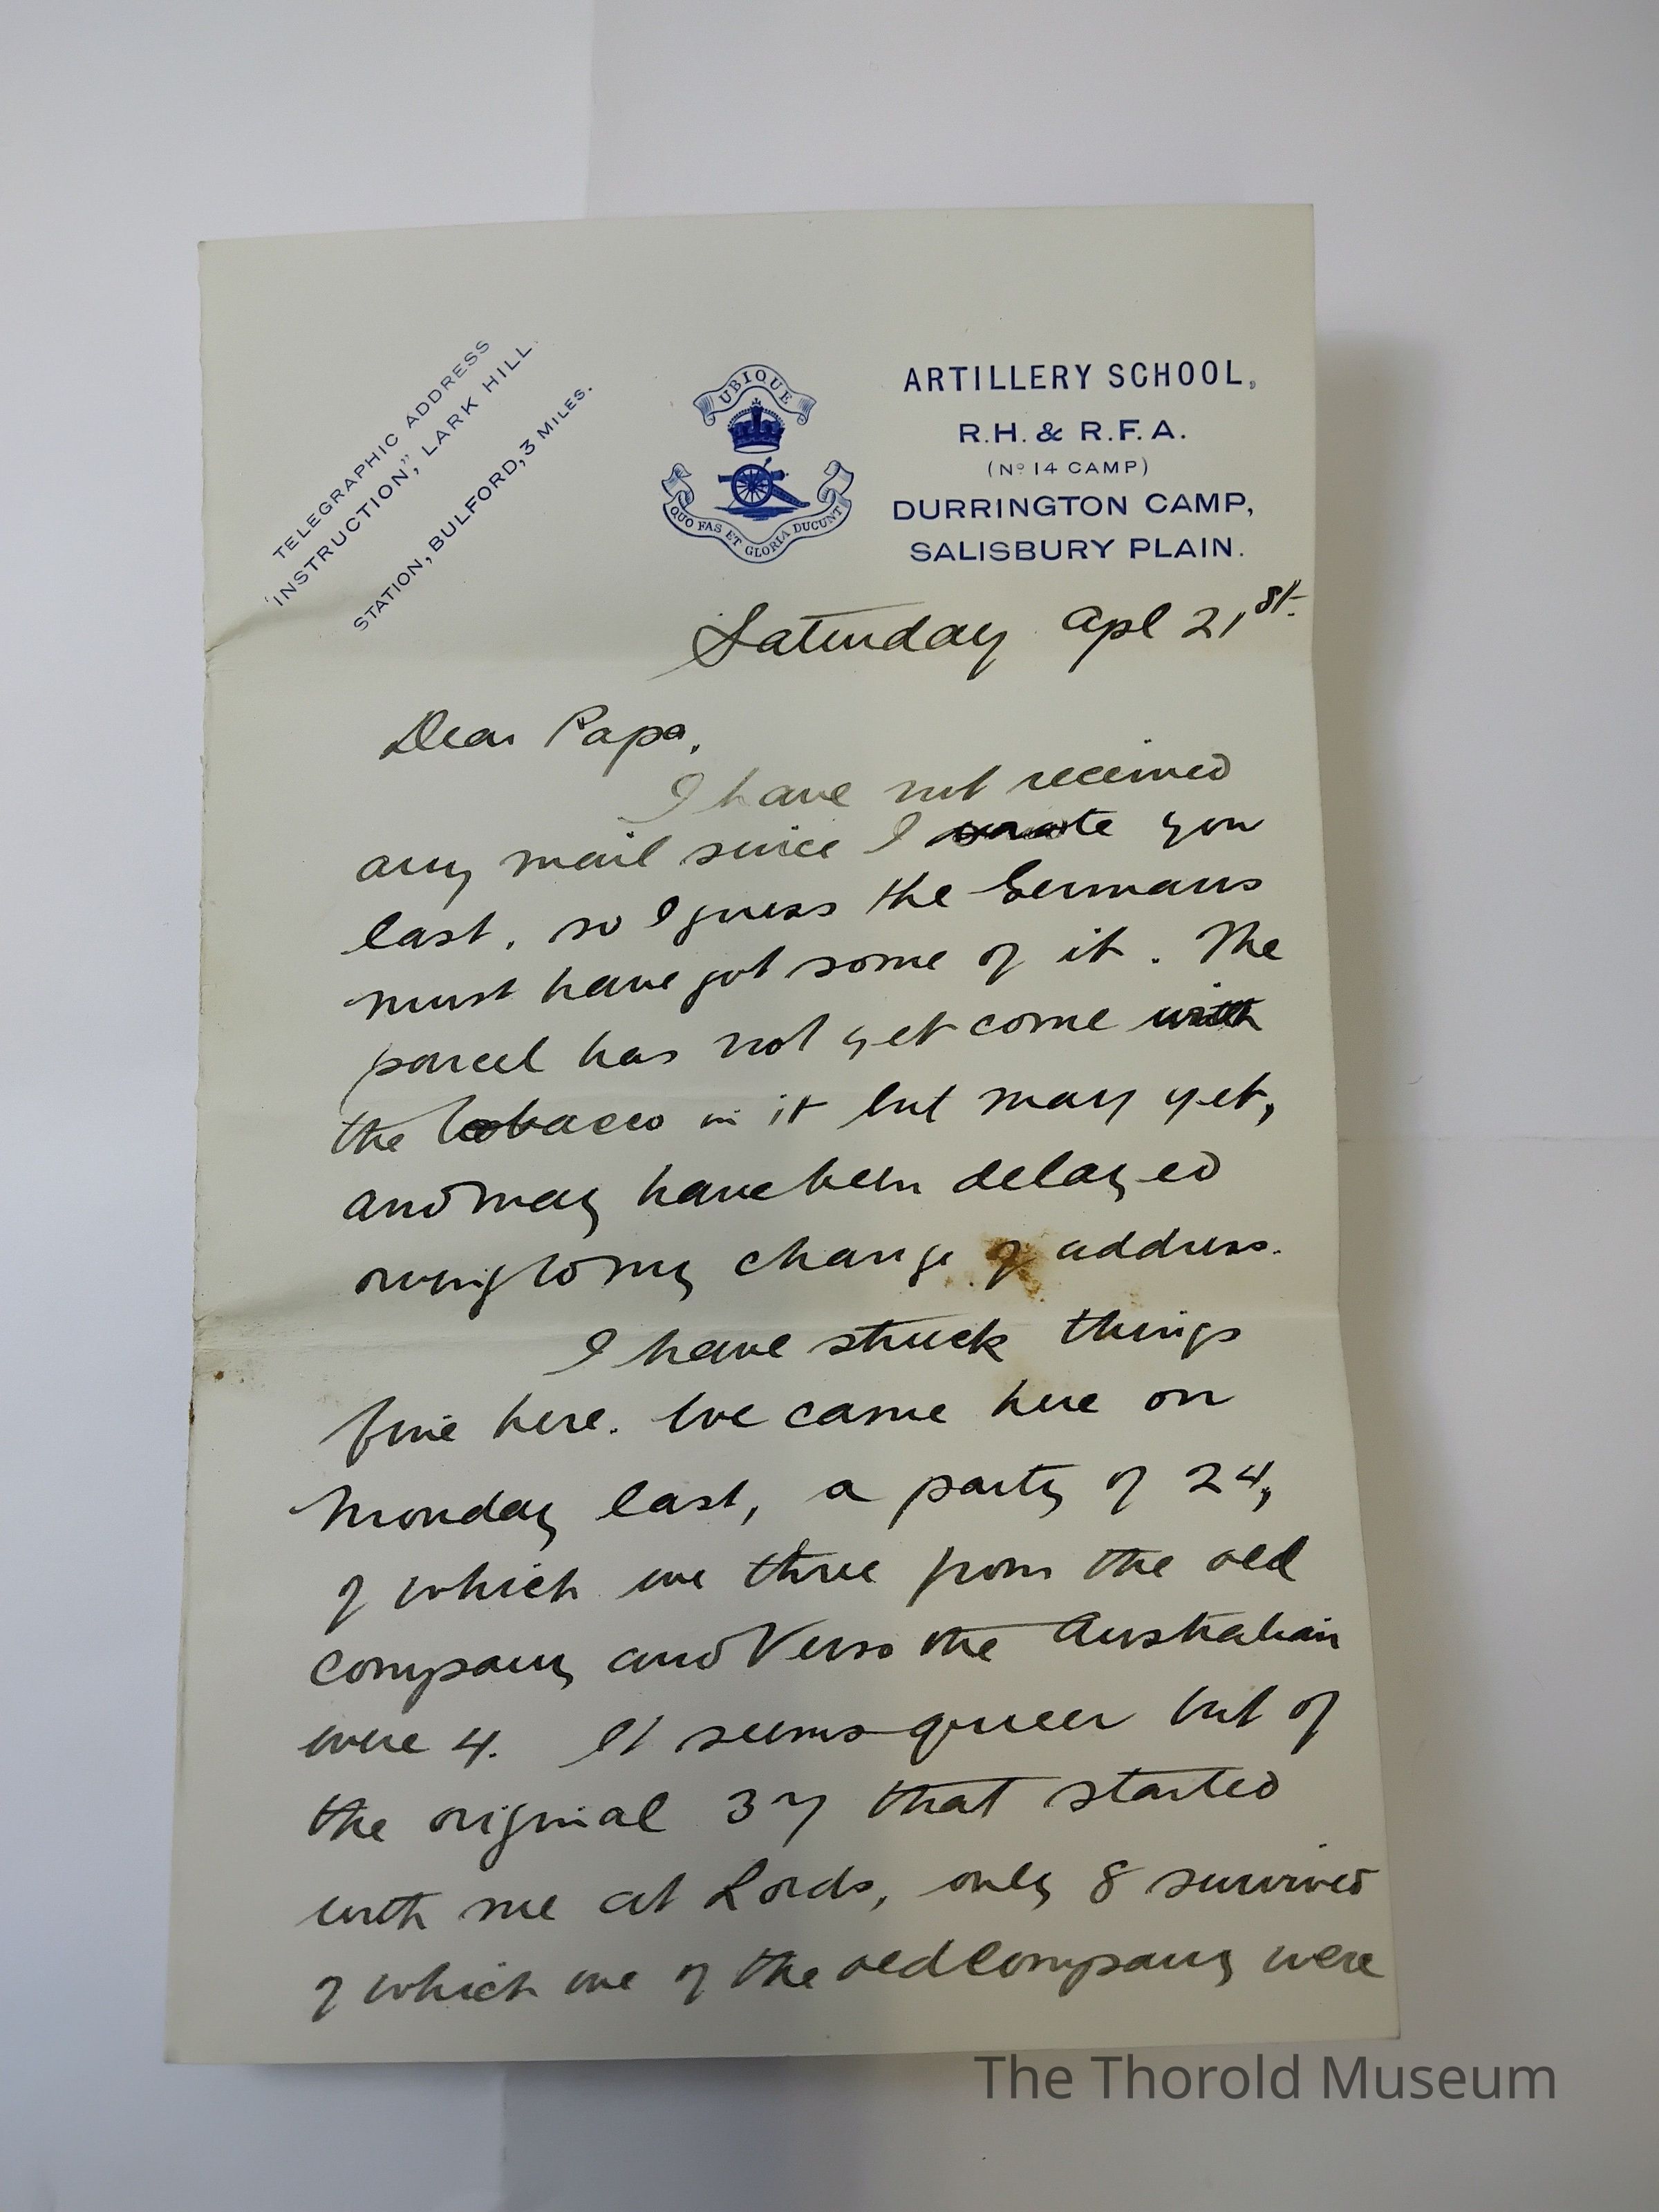 TELEGRAPHIC ADDRESS
"INSTRUCTION," LARK HILL.
STATION, BULFORD, 3 MILES.
UBIQUE
QUO FAS ET GLORIA DUCUNT
ARTILLERY SCHOOL,
R.H. & R.F.A.
(No 14 CAMP)
DURRINGTON CAMP,
SALISBURY PLAIN.
Saturday Apl 21st.
Dear Papa,
I have not received
any mail since I wrote you
last, so I guess the Germans
must have got some of it. The
parcel has not yet come with
the tobacco in it but may yet,
and may have been delayed
owing to my change of address.
I have struck things
fine here. We came here on
Monday last, a party of 24,
of which we three from the old
Company and Verso the Australian
were 4. It seems queer but of
the original 37 that started
with me at Lords, only 8 survived
of which we of the old Company were
The Thorold Museum